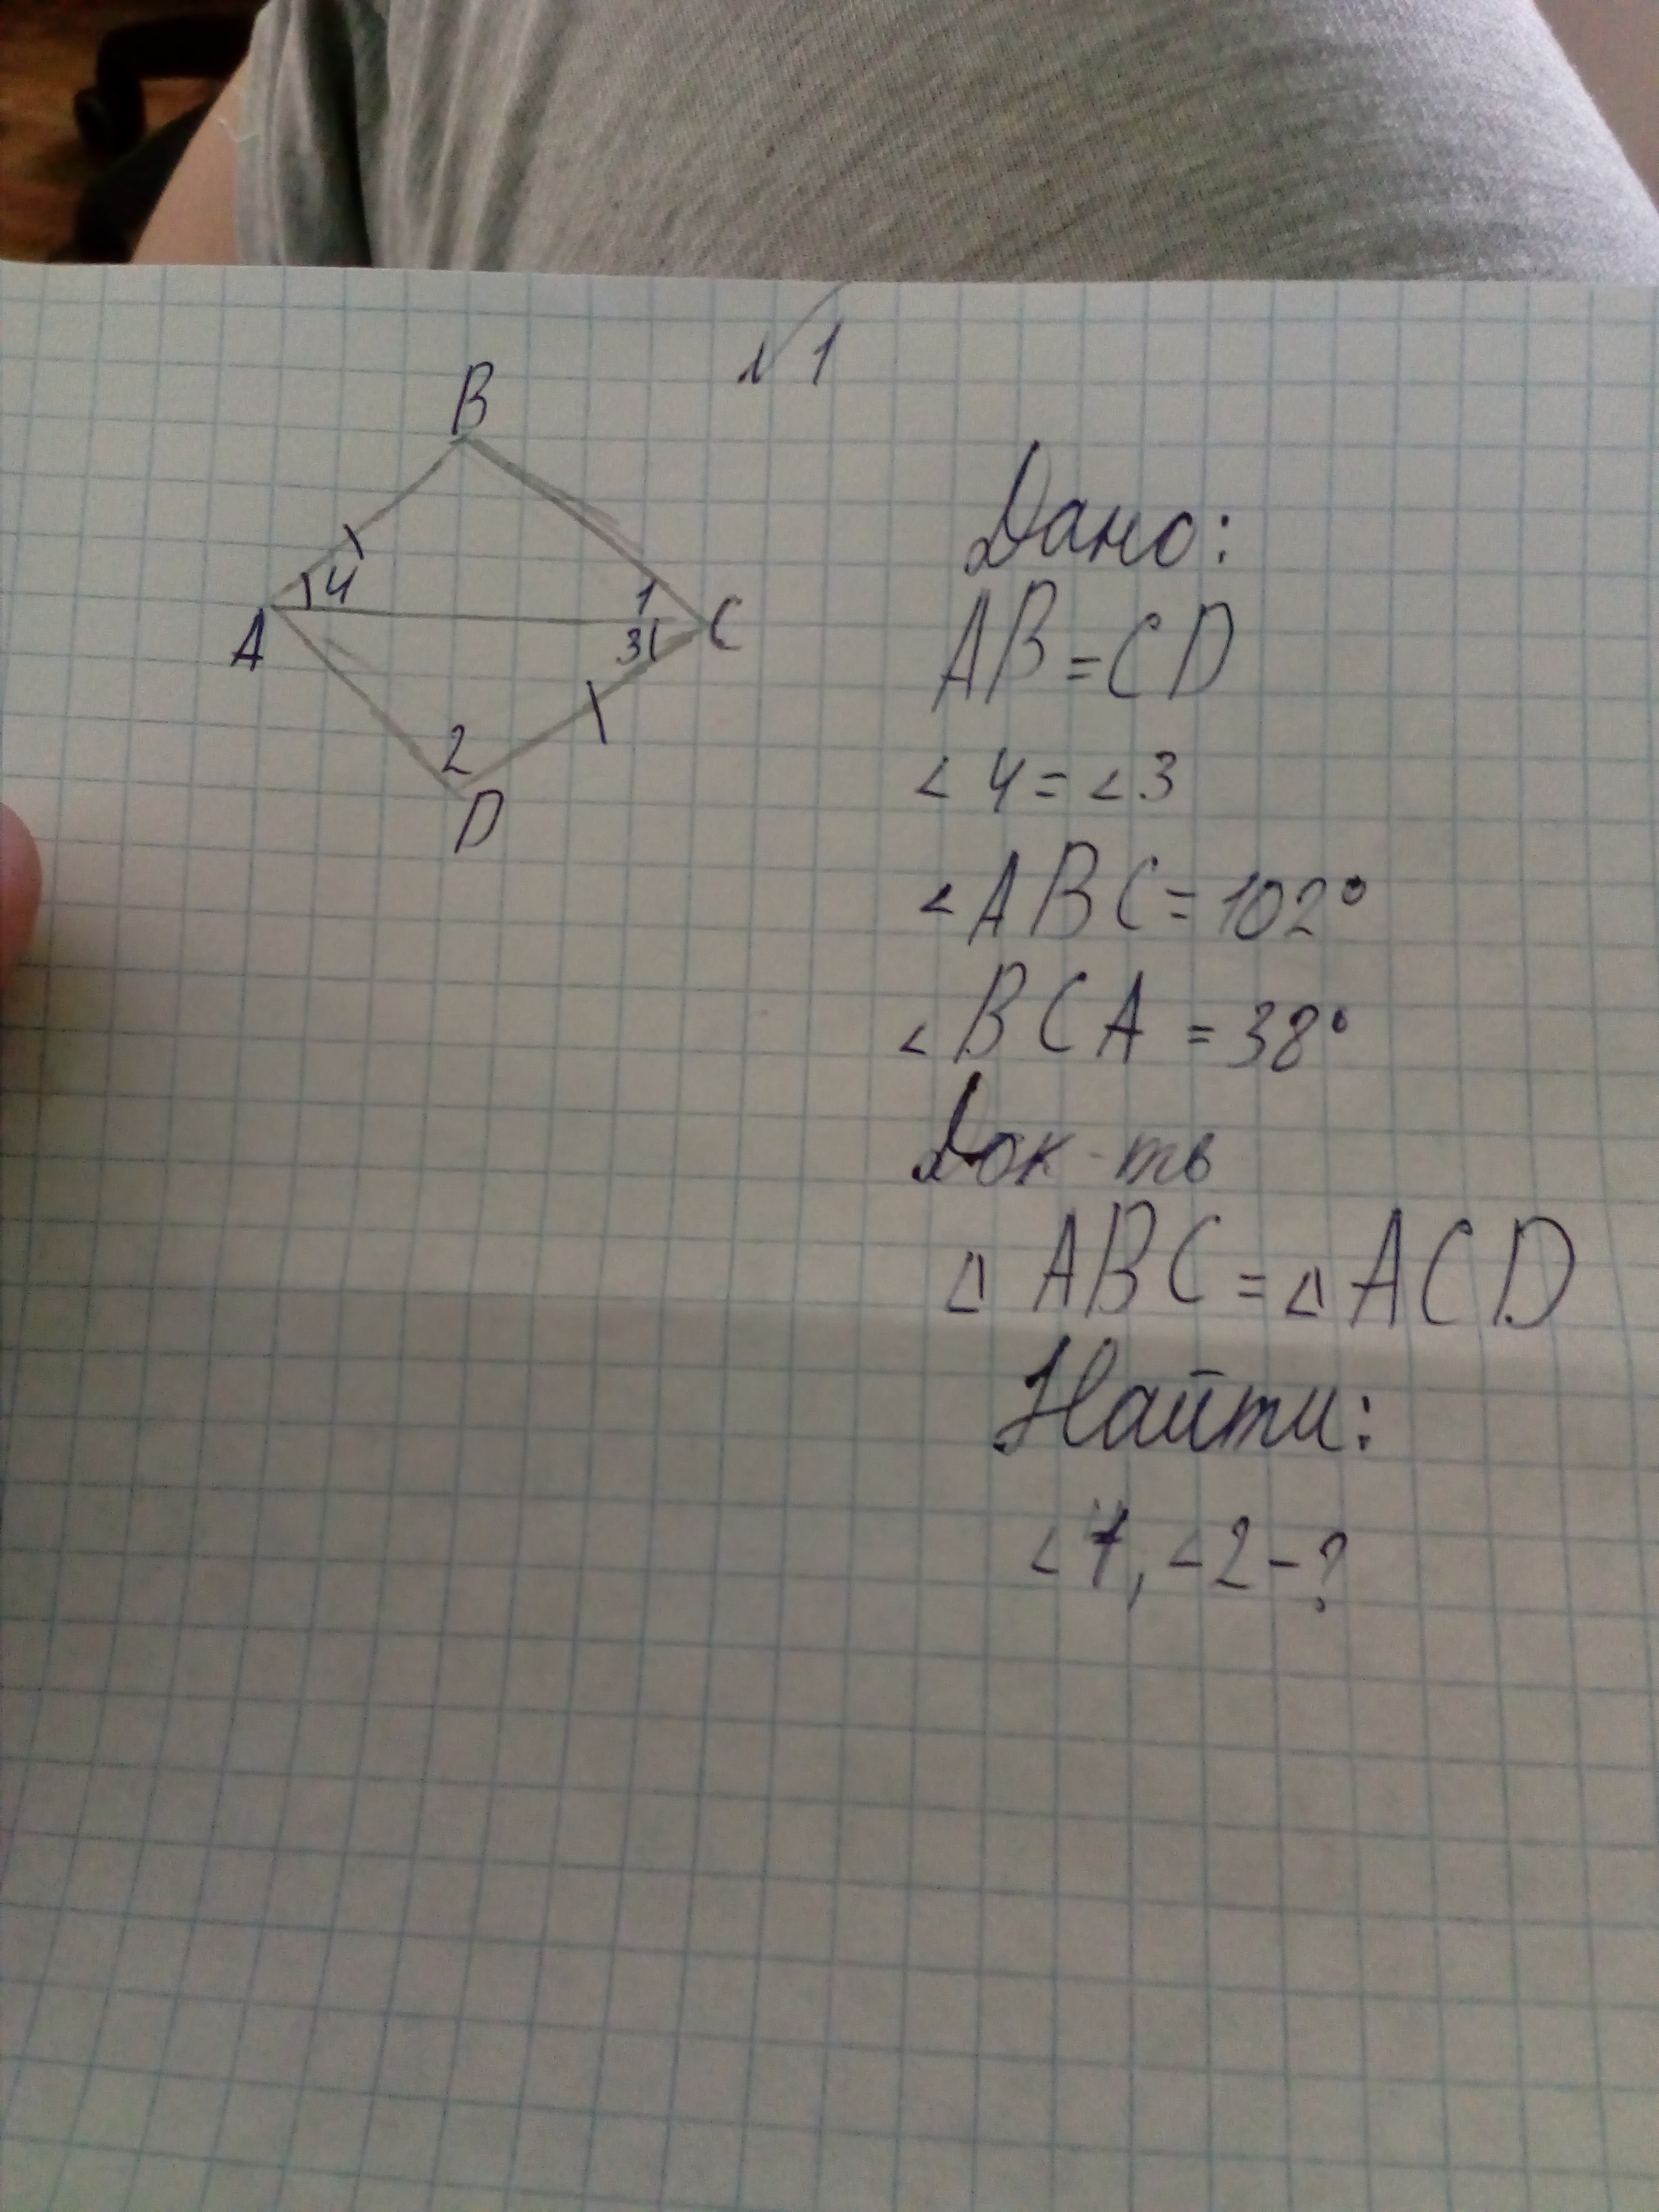 №1
B
4
1
A
C
3
2
D
Дано:
AB=CD
<4=<3
<ABC=102°
<BCA=38°
Док-ть
△ABC=△ACD
Найти:
<2-?